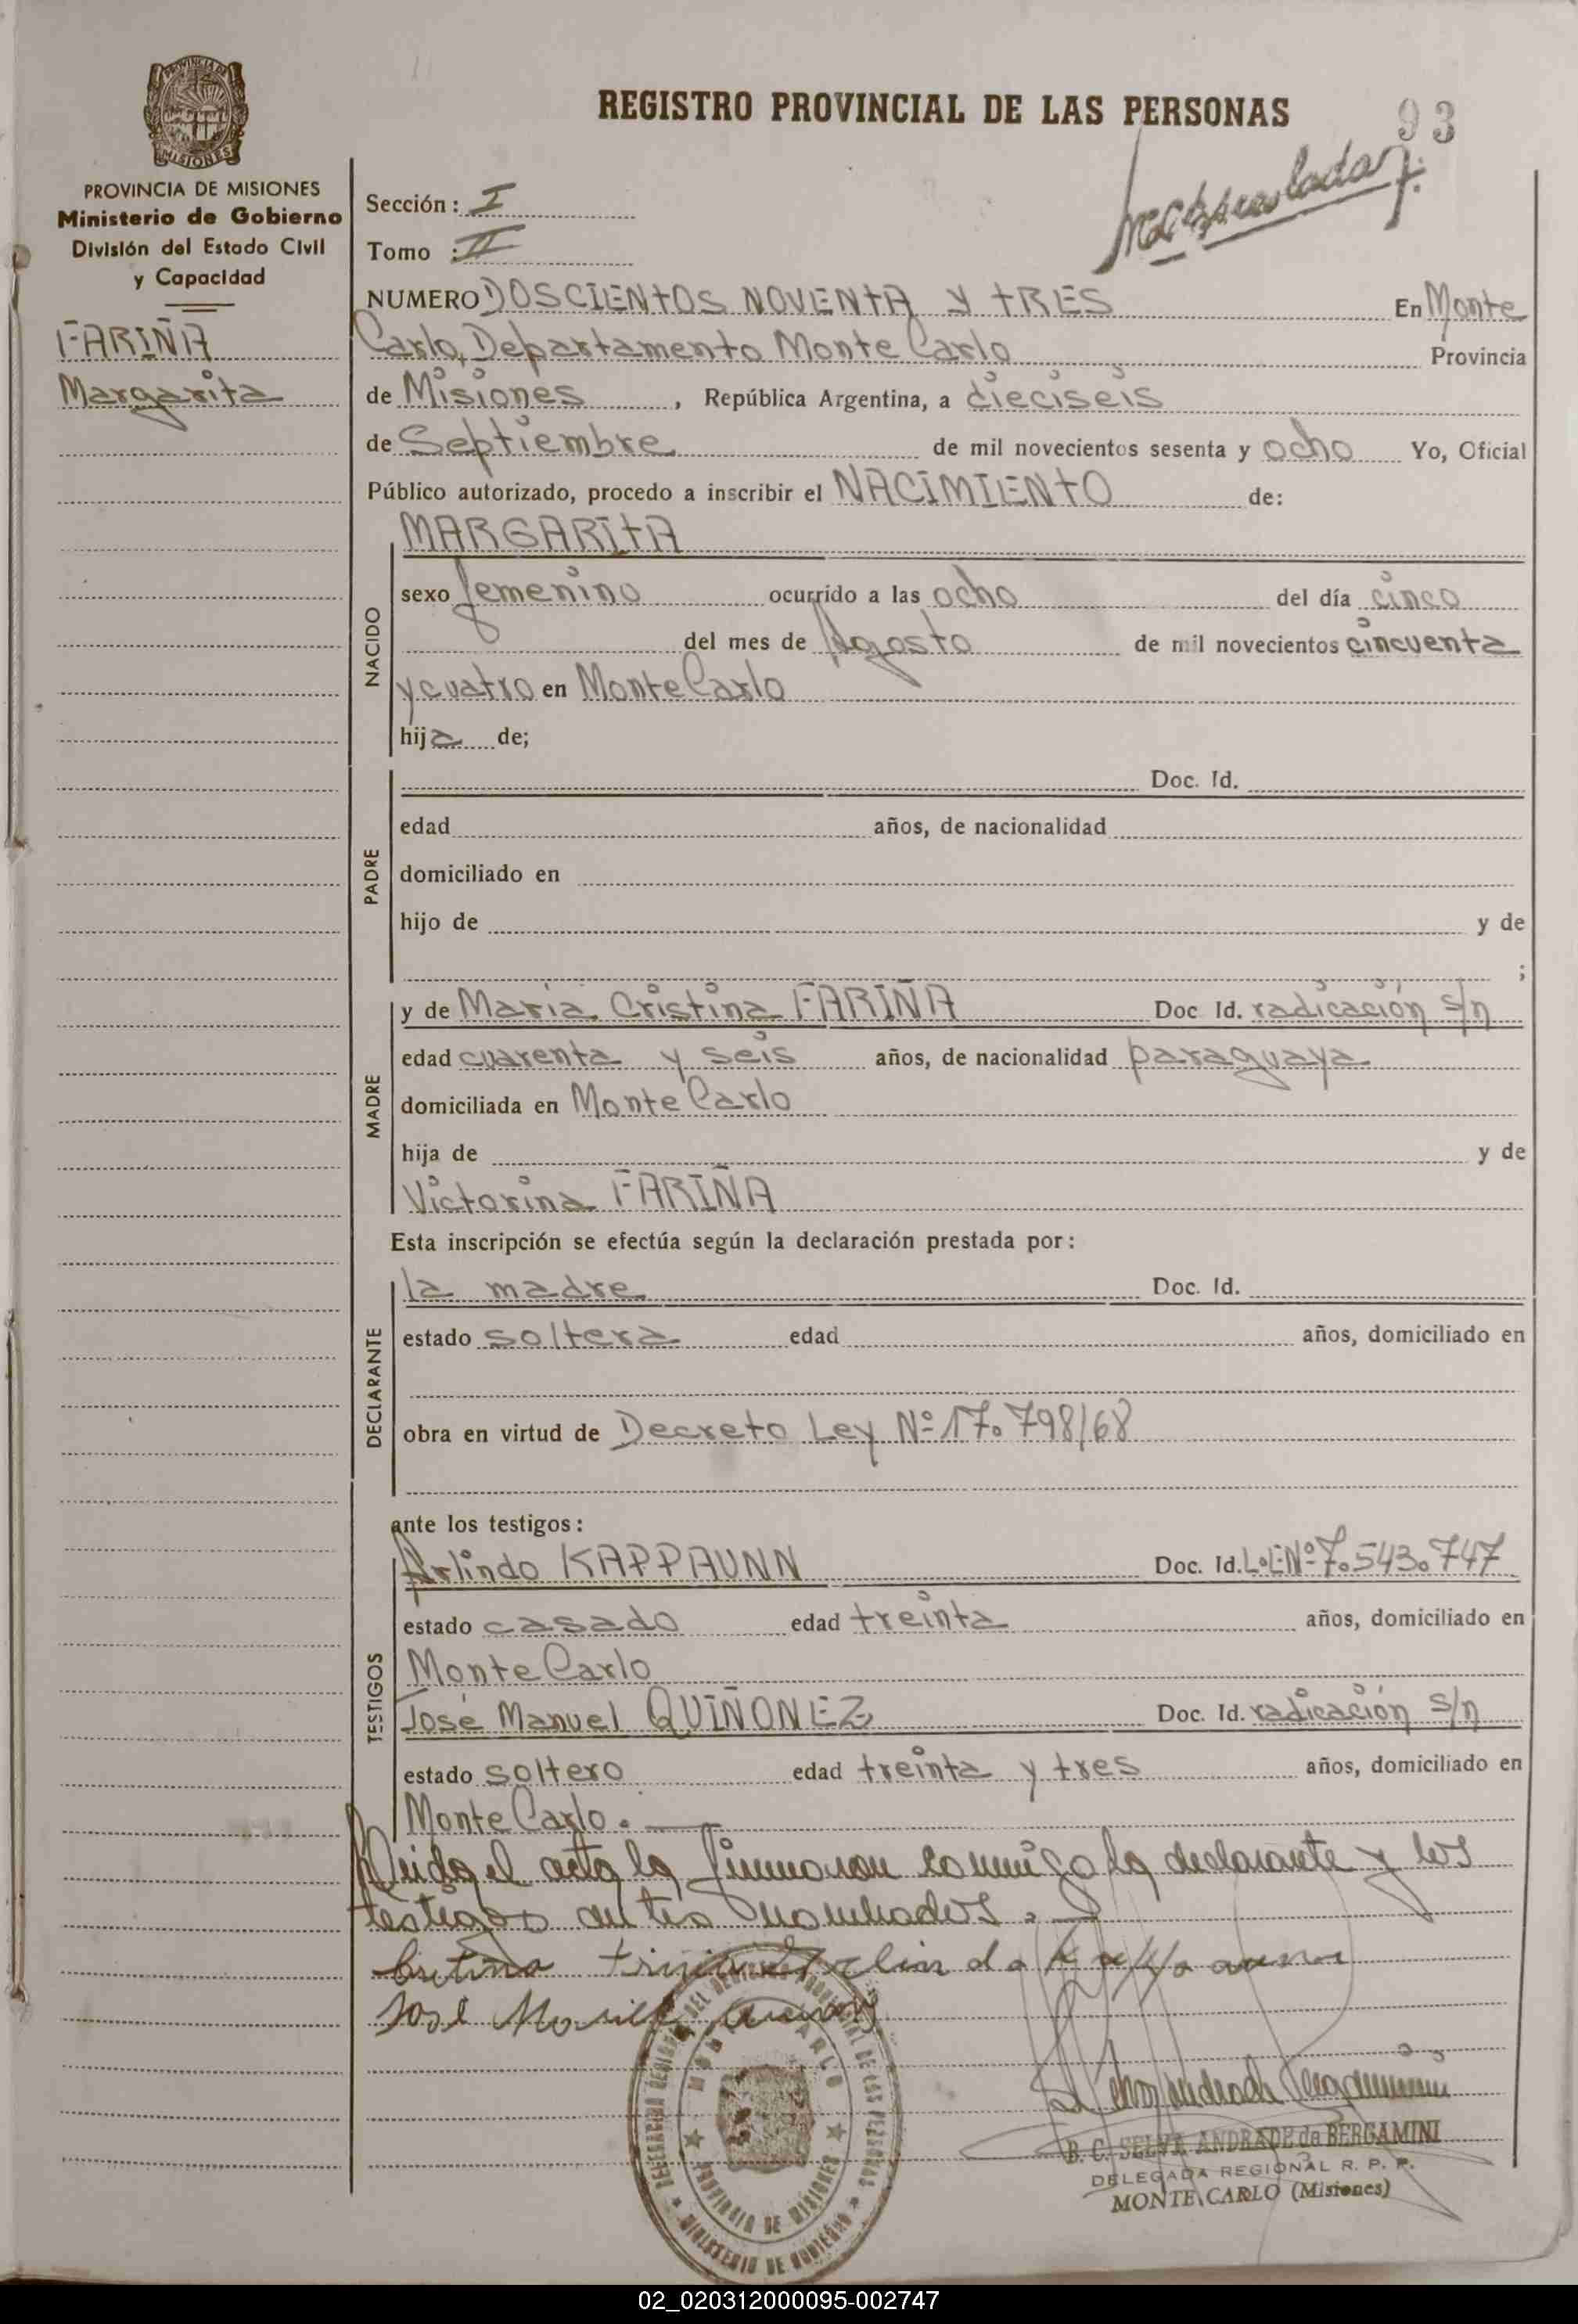 REGISTRO PROVINCIAL DE LAS PERSONAS
93
PROVINCIA DE MISIONES
PROVINCIA DE MISIONES
Ministerio de Gobierno
División del Estado Civil
y Capacidad
FARIÑA
Margarita
Sección: I
Tomo : II
NUMERO DOSCIENTOS NOVENTA Y TRES En Monte
Carlo, Departamento Monte Carlo Provincia
de Misiones, República Argentina, a dieciseis
de Septiembre de mil novecientos sesenta y ocho Yo, Oficial
Público autorizado, procedo a inscribir el NACIMIENTO de:
NACIDO
MARGARITA
sexo femenino ocurrido a las ocho del día cinco
del mes de Agosto de mil novecientos cincuenta
y cuatro en Monte Carlo
hija de;
PADRE
Doc. Id.
edad años, de nacionalidad
domiciliado en
hijo de y de
;
MADRE
y de María Cristina FARIÑA Doc Id. radicación s/n
edad cuarenta y seis años, de nacionalidad paraguaya
domiciliada en Monte Carlo
hija de y de
Victorina FARIÑA
Esta inscripción se efectúa según la declaración prestada por:
DECLARANTE
la madre Doc. Id.
estado soltera edad años, domiciliado en
obra en virtud de Decreto Ley Nº 17.798/68
ante los testigos:
TESTIGOS
Arlindo KAPPAUNN Doc. Id. L.E.Nº 7.543.747
estado casado edad treinta años, domiciliado en
Monte Carlo
José Manuel QUIÑONEZ Doc. Id. radicación s/n
estado soltero edad treinta y tres años, domiciliado en
Monte Carlo.
Leida el acta la firmaron conmigo la declarante y los
testigos antes nombrados.
B. C. SELVA ANDRADE de BERGAMINI
DELEGADA REGIONAL R. P. P.
MONTE CARLO (Misiones)
DELEGACION REGIONAL DEL REGISTRO PROVINCIAL DE LAS PERSONAS
MONTE CARLO
PROVINCIA DE MISIONES
MINISTERIO DE GOBIERNO
02_020312000095-002747